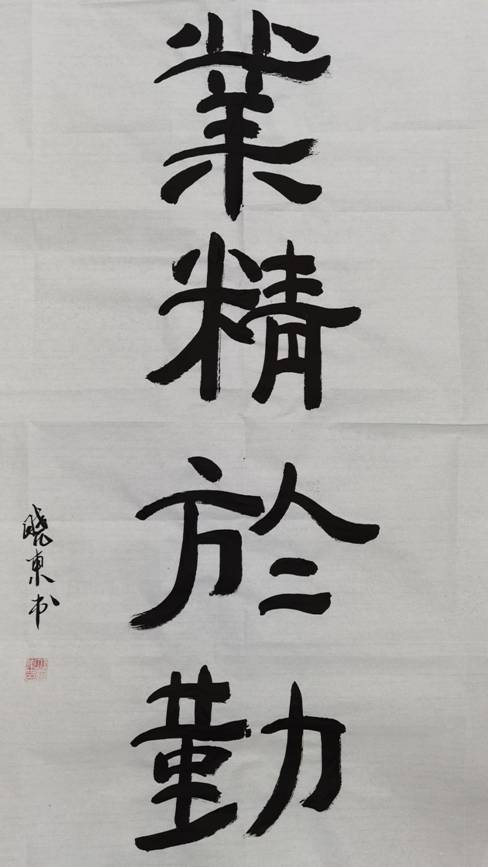 業精於勤
曉東书